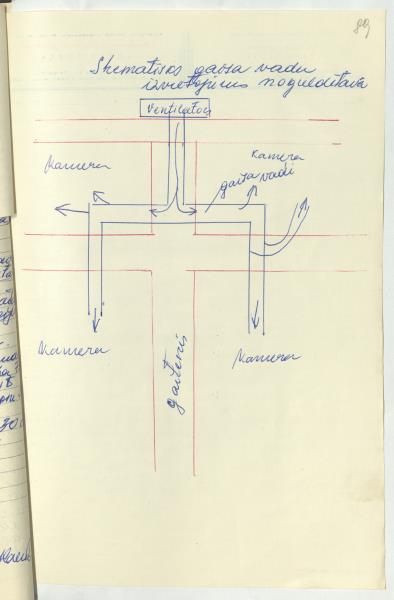 89
Skematisos gaisa vadu
izvietojums noguldītavā
Ventilators
Kamera
Kamera
gaisa vadi
Kamera
Kamera
gaitenis
30